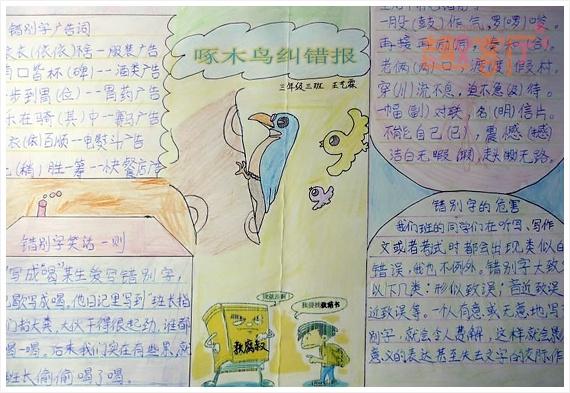 错别字广告词
衣(依依)捨—服装广告
口皆杯(碑)——酒类广告
步到胃(位)——胃药广告
在骑(其)中—赛马广告
衣(依)百顺—电熨斗广告
(稍)胜一筹—快餐店广告
错别字笑话一则
写成"喝"某生爱写错别字,
歌写成喝,他日记里写到"班长指
们打大粪,大伙干得很起劲,谁都
喝一喝。后来我们实在有些累,就
班长偷偷喝了喝。
啄木鸟纠错报
三年级三班 王艺霖
我很丑啊!
我要找教错书
救腐救
一股(鼓)作气,
再接再
老俩(两)口,渡(度)假村。
穿(川)流不息,迫不急(及)待。
一幅(副)对联,名(明)信片。
不能自己(已),震憾(撼)
洁白无暇(瑕)
错别字的危害
我们班的同学们在听写、写作
文或者考试时都会出现类似的
错误,我也不例外。错别字大致
以下几类:形似致误;音近致误
近致误等。一个人有意或无意地写
别字,就会令人费解,这样就会影
意义的表达甚至失去文字的交际作